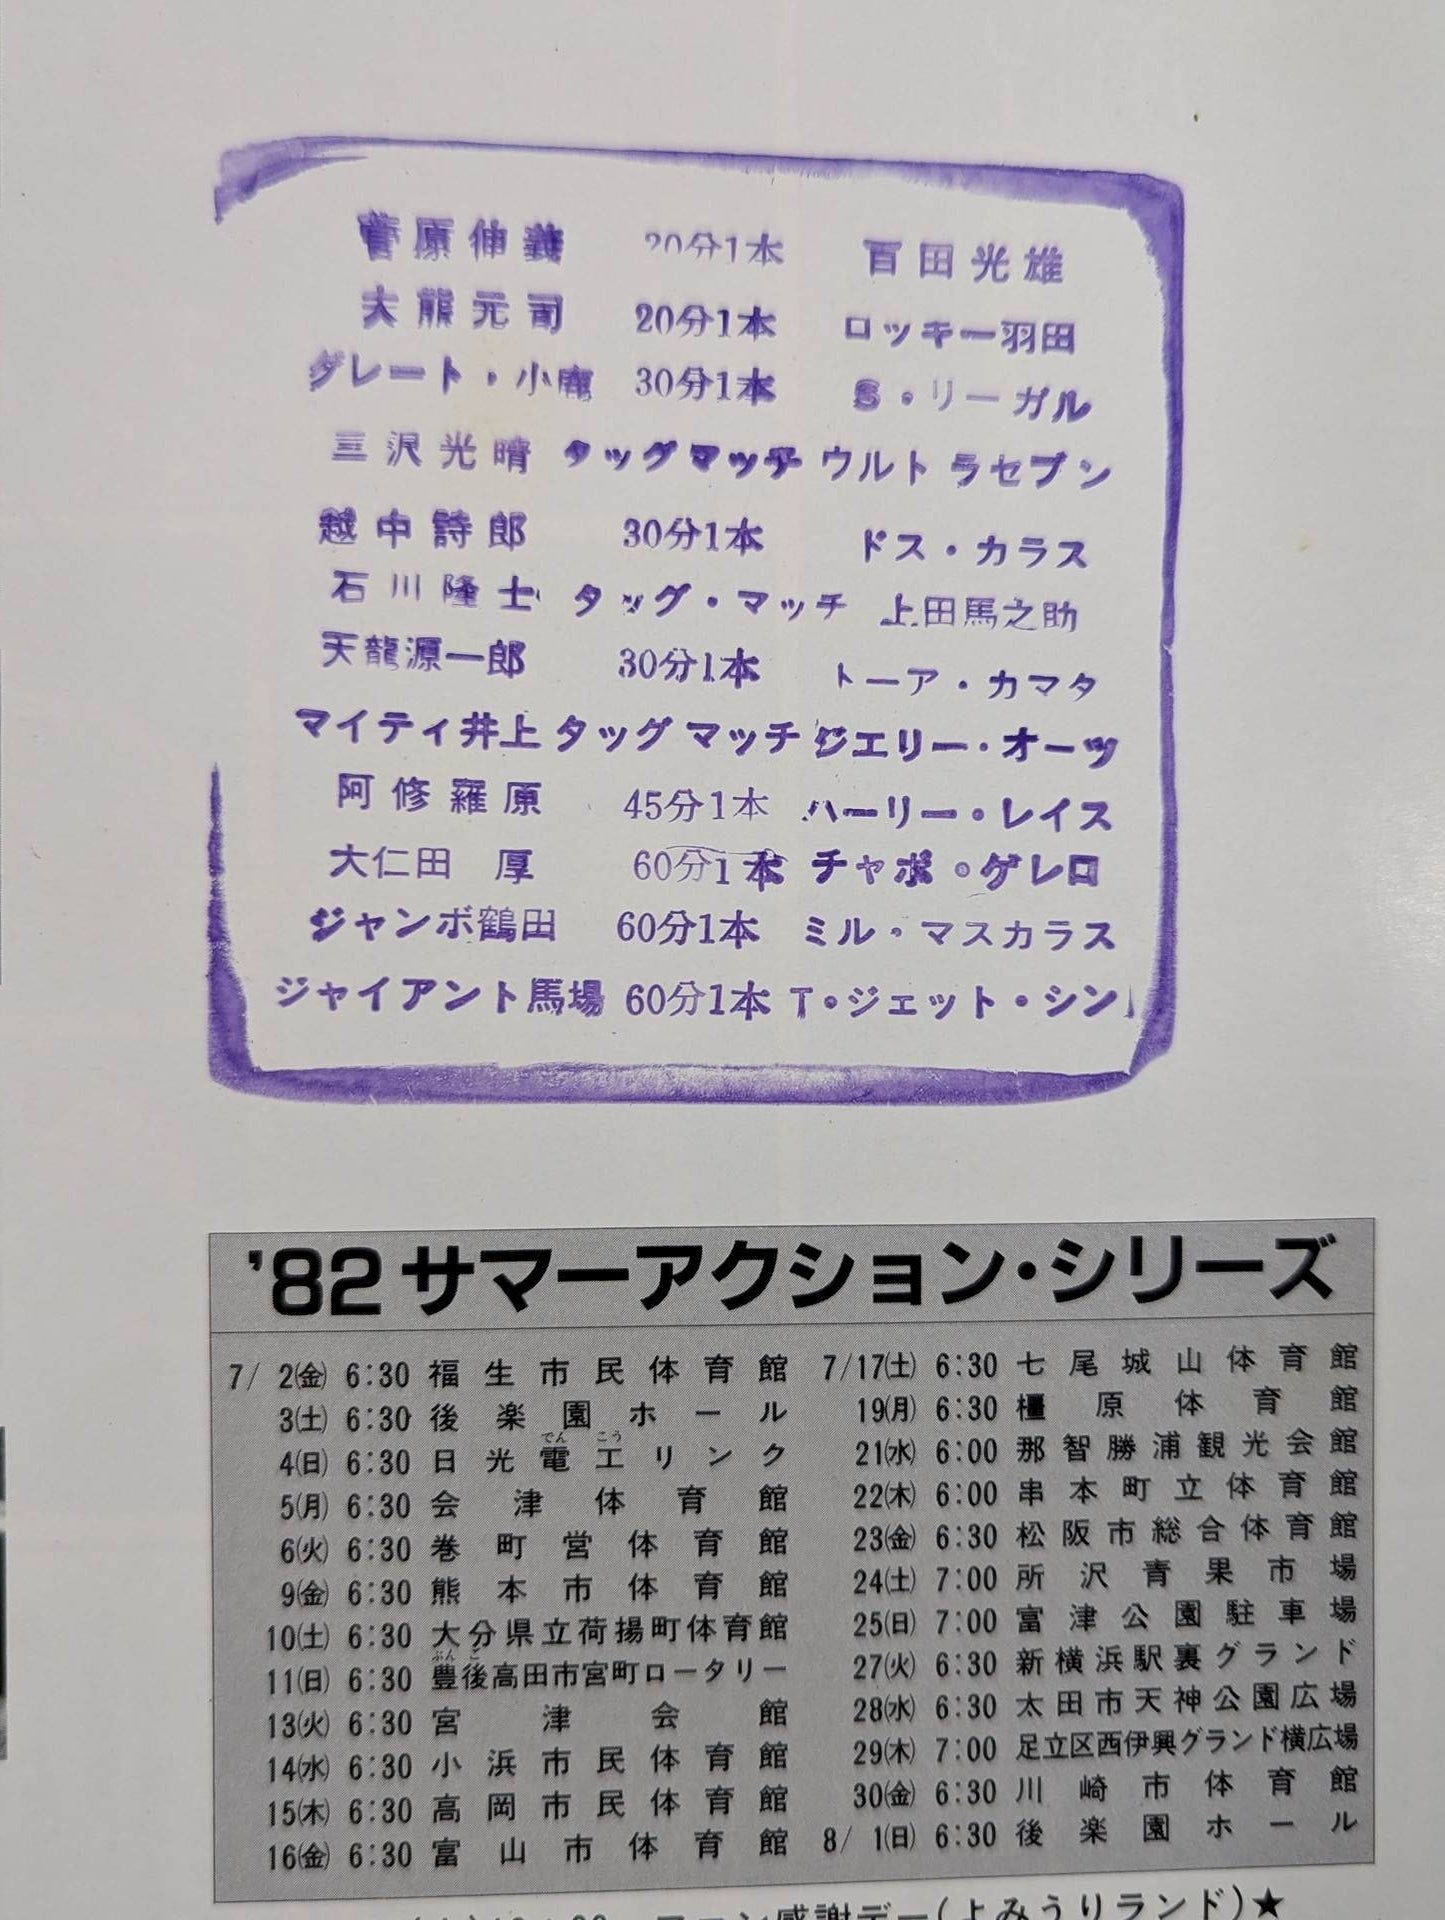 菅原伸義 20分1本 百田光雄
大熊元司 20分1本 ロッキー羽田
グレート・小鹿 30分1本 S・リーガル
三沢光晴 タッグマッチ ウルトラセブン
越中詩郎 30分1本 ドス・カラス
石川隆士 タッグ・マッチ 上田馬之助
天龍源一郎 30分1本 トーア・カマタ
マイティ井上 タッグマッチ ジエリー・オーツ
阿修羅原 45分1本 ハーリー・レイス
大仁田 厚 60分1本 チャボ・ゲレロ
ジャンボ鶴田 60分1本 ミル・マスカラス
ジャイアント馬場 60分1本 T・ジェット・シン
'82サマーアクション・シリーズ
7/2㈮ 6:30 福生市民体育館
3㈯ 6:30 後楽園ホール
でん こう
4㈰ 6:30 日光電工リンク
5㈪ 6:30 会津体育館
6㈫ 6:30 巻町営体育館
9㈮ 6:30 熊本市体育館
10㈯ 6:30 大分県立荷揚町体育館
ぶんご
11㈰ 6:30 豊後高田市宮町ロータリー
13㈫ 6:30 宮津会館
14㈬ 6:30 小浜市民体育館
15㈭ 6:30 高岡市民体育館
16㈮ 6:30 富山市体育館
7/17㈯ 6:30 七尾城山体育館
19㈪ 6:30 橿原体育館
21㈬ 6:00 那智勝浦観光会館
22㈭ 6:00 串本町立体育館
23㈮ 6:30 松阪市総合体育館
24㈯ 7:00 所沢青果市場
25㈰ 7:00 富津公園駐車場
27㈫ 6:30 新横浜駅裏グランド
28㈬ 6:30 太田市天神公園広場
29㈭ 7:00 足立区西伊興グランド横広場
30㈮ 6:30 川崎市体育館
8/1㈰ 6:30 後楽園ホール
ファン感謝デー(よみうりランド)★